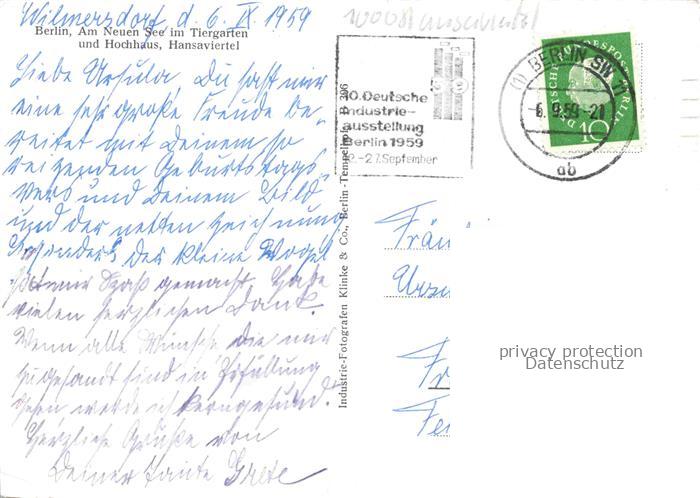 Wilmersdorf d. 6. IX. 1959
Berlin, Am Neuen See im Tiergarten
und Hochhaus, Hansaviertel
Liebe Ursula, Du hast mir
eine sehr große Freude be-
reitet mit Deinem so
reizenden Geburtstags
Vers und Deinem Bild
und der netten Zeichnung
besonders der kleine Vogel
hat mir Spaß gemacht. Habe
vielen herzlichen Dank.
Wenn alle Wünsche die mir
zugesandt sind in Erfüllung
gehen werde ich kerngesund.
Herzliche Grüße von
Deiner Tante Grete
Industrie-Fotografen Klinke & Co., Berlin-Tempelhof
306
10.Deutsche
Industrie-
ausstellung
Berlin 1959
-27.September
(1) BERLIN SW 11
6.9.59-21
ab
DEUTSCHE BUNDESPOST BERLIN
10
Fräu
Ursu
privacy protection
Datenschutz